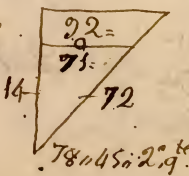 92=
71=
14 72
78,,45,,2,,9